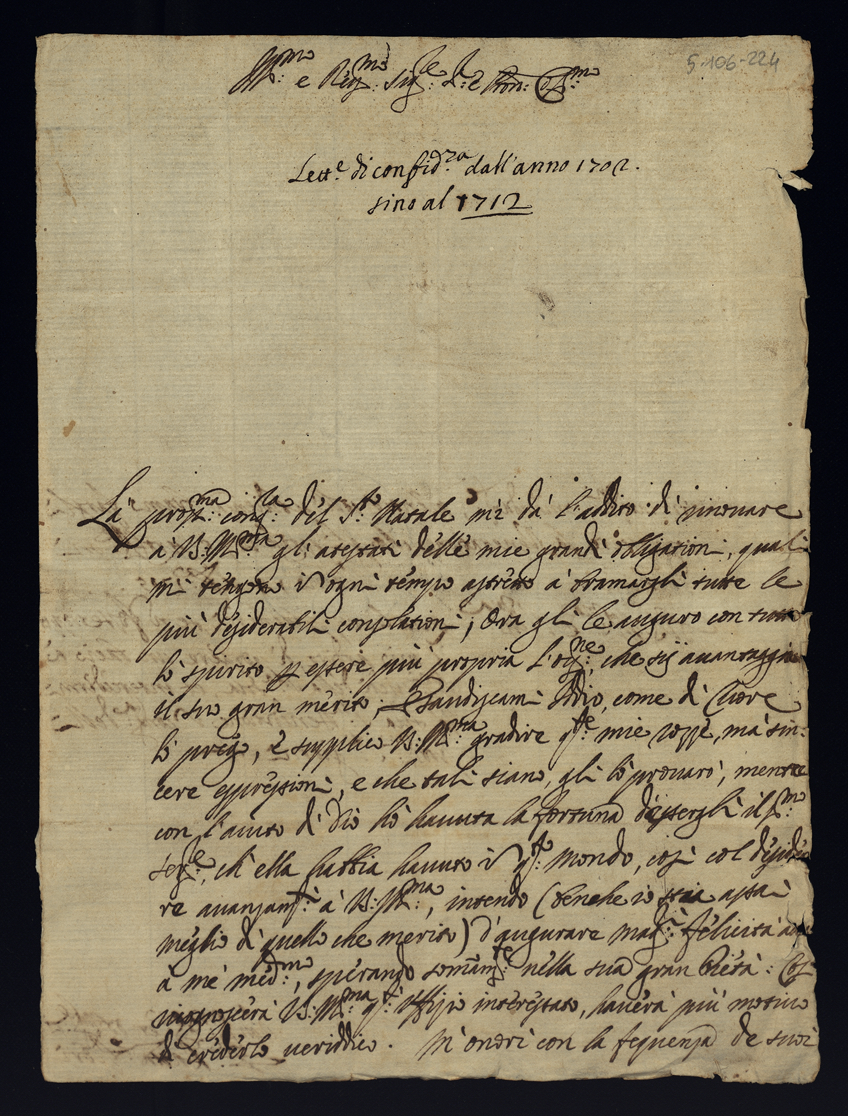 5-106-224
Ill:mo e Rev:mo Sig:re S:r e Pron: Col:mo
Lett.e di confid.za dall'anno 1702.
sino al 1712
La pross:ma cong:ra del S:to Natale mi dà l'adito di rinovare
à V:S:Ill:ma gli attestati delle mie grandi obligationi, quali
mi tengono in ogni tempo astretto à bramargli tutte le
più desiderabili consolationi; Ora gli le auguro con tutto
lo spirito per essere più propria l'occ:ne, che sij avantaggiato
il suo gran merito; Esaudiscami Iddio, come di Cuore
lo prego, e supplico V:S:Ill:ma gradire q:ste mie rozze, mà sin-
cere espressioni, e che tali siano, gli lo provarò, mentre
con l'aiuto di Dio hò havuta la fortuna d'essergli il p:mo
ser:re, ch'ella habbia havuto in q:sto mondo, così col deside
re avanzam:ti à V:S:Ill:ma, intendo (benche io stia assai
meglio di quello che merito) d'augurare mag:ri felicità
à me med:mo, sperando somam:te nella sua gran Pietà: Così
V:S:Ill:ma q:sto Uffizio interessato, haverà più motivo
di crederlo veridico. M'onori con la frequenza de suoi